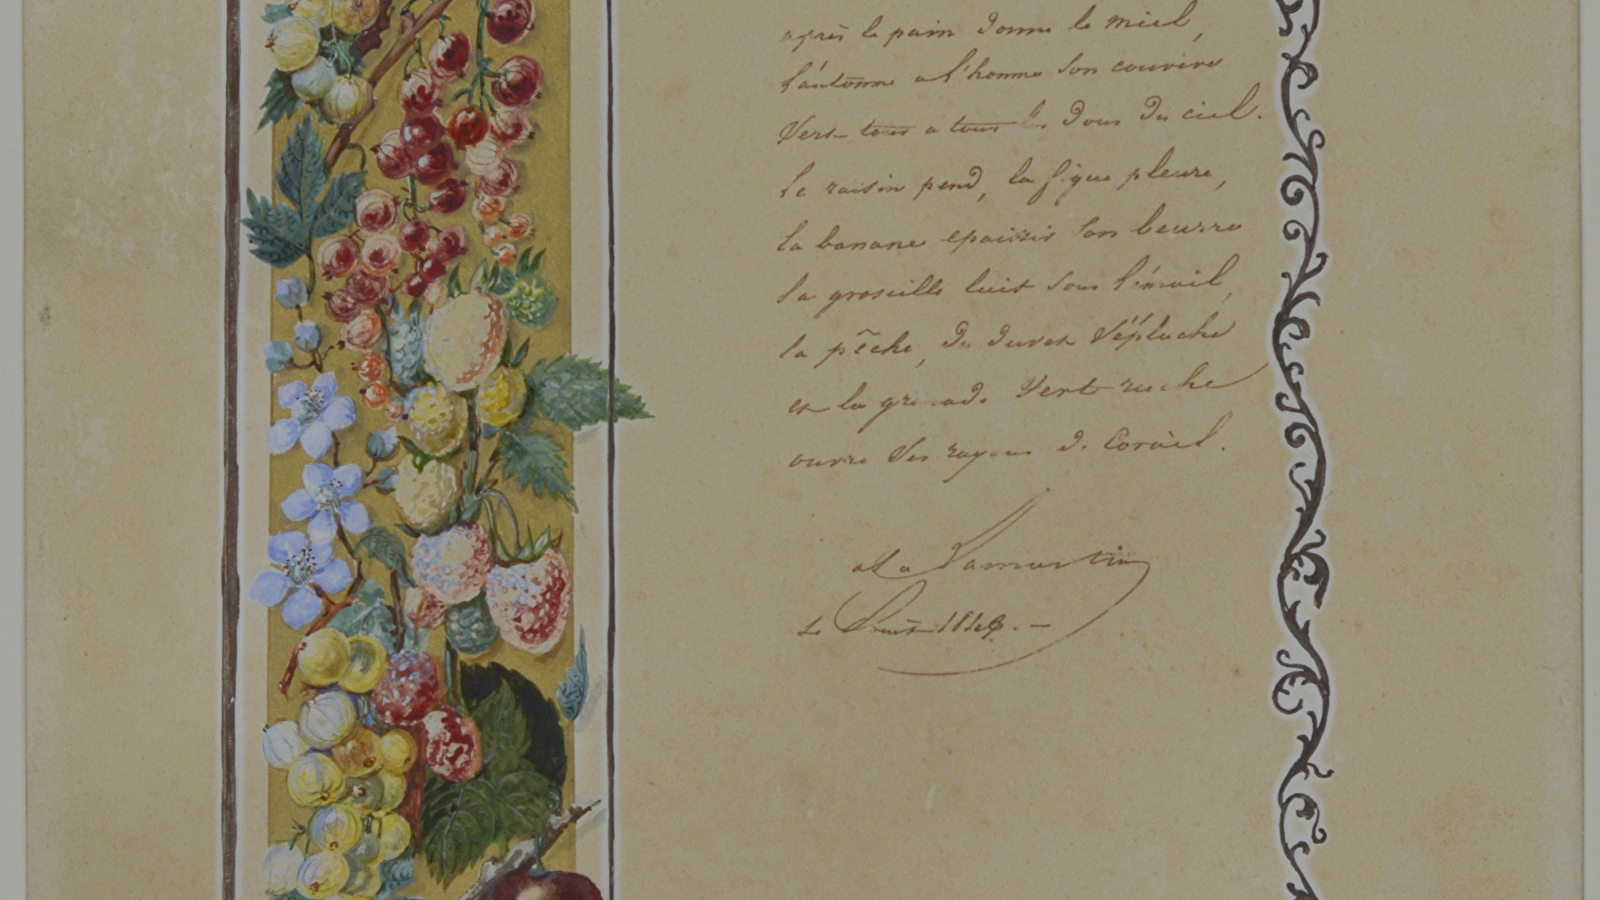 après le pain donne le miel,
l'automne a l'homme son convive
Verse tour a tour les dons du ciel.
le raisin pend, la figue pleure,
la banane epaissis son beurre
la groseille luit sous l'émail,
la pêche, du duvet s'épluche
et la grenade Verte ruche
ouvre ses rayons de Corail.
Lamartine